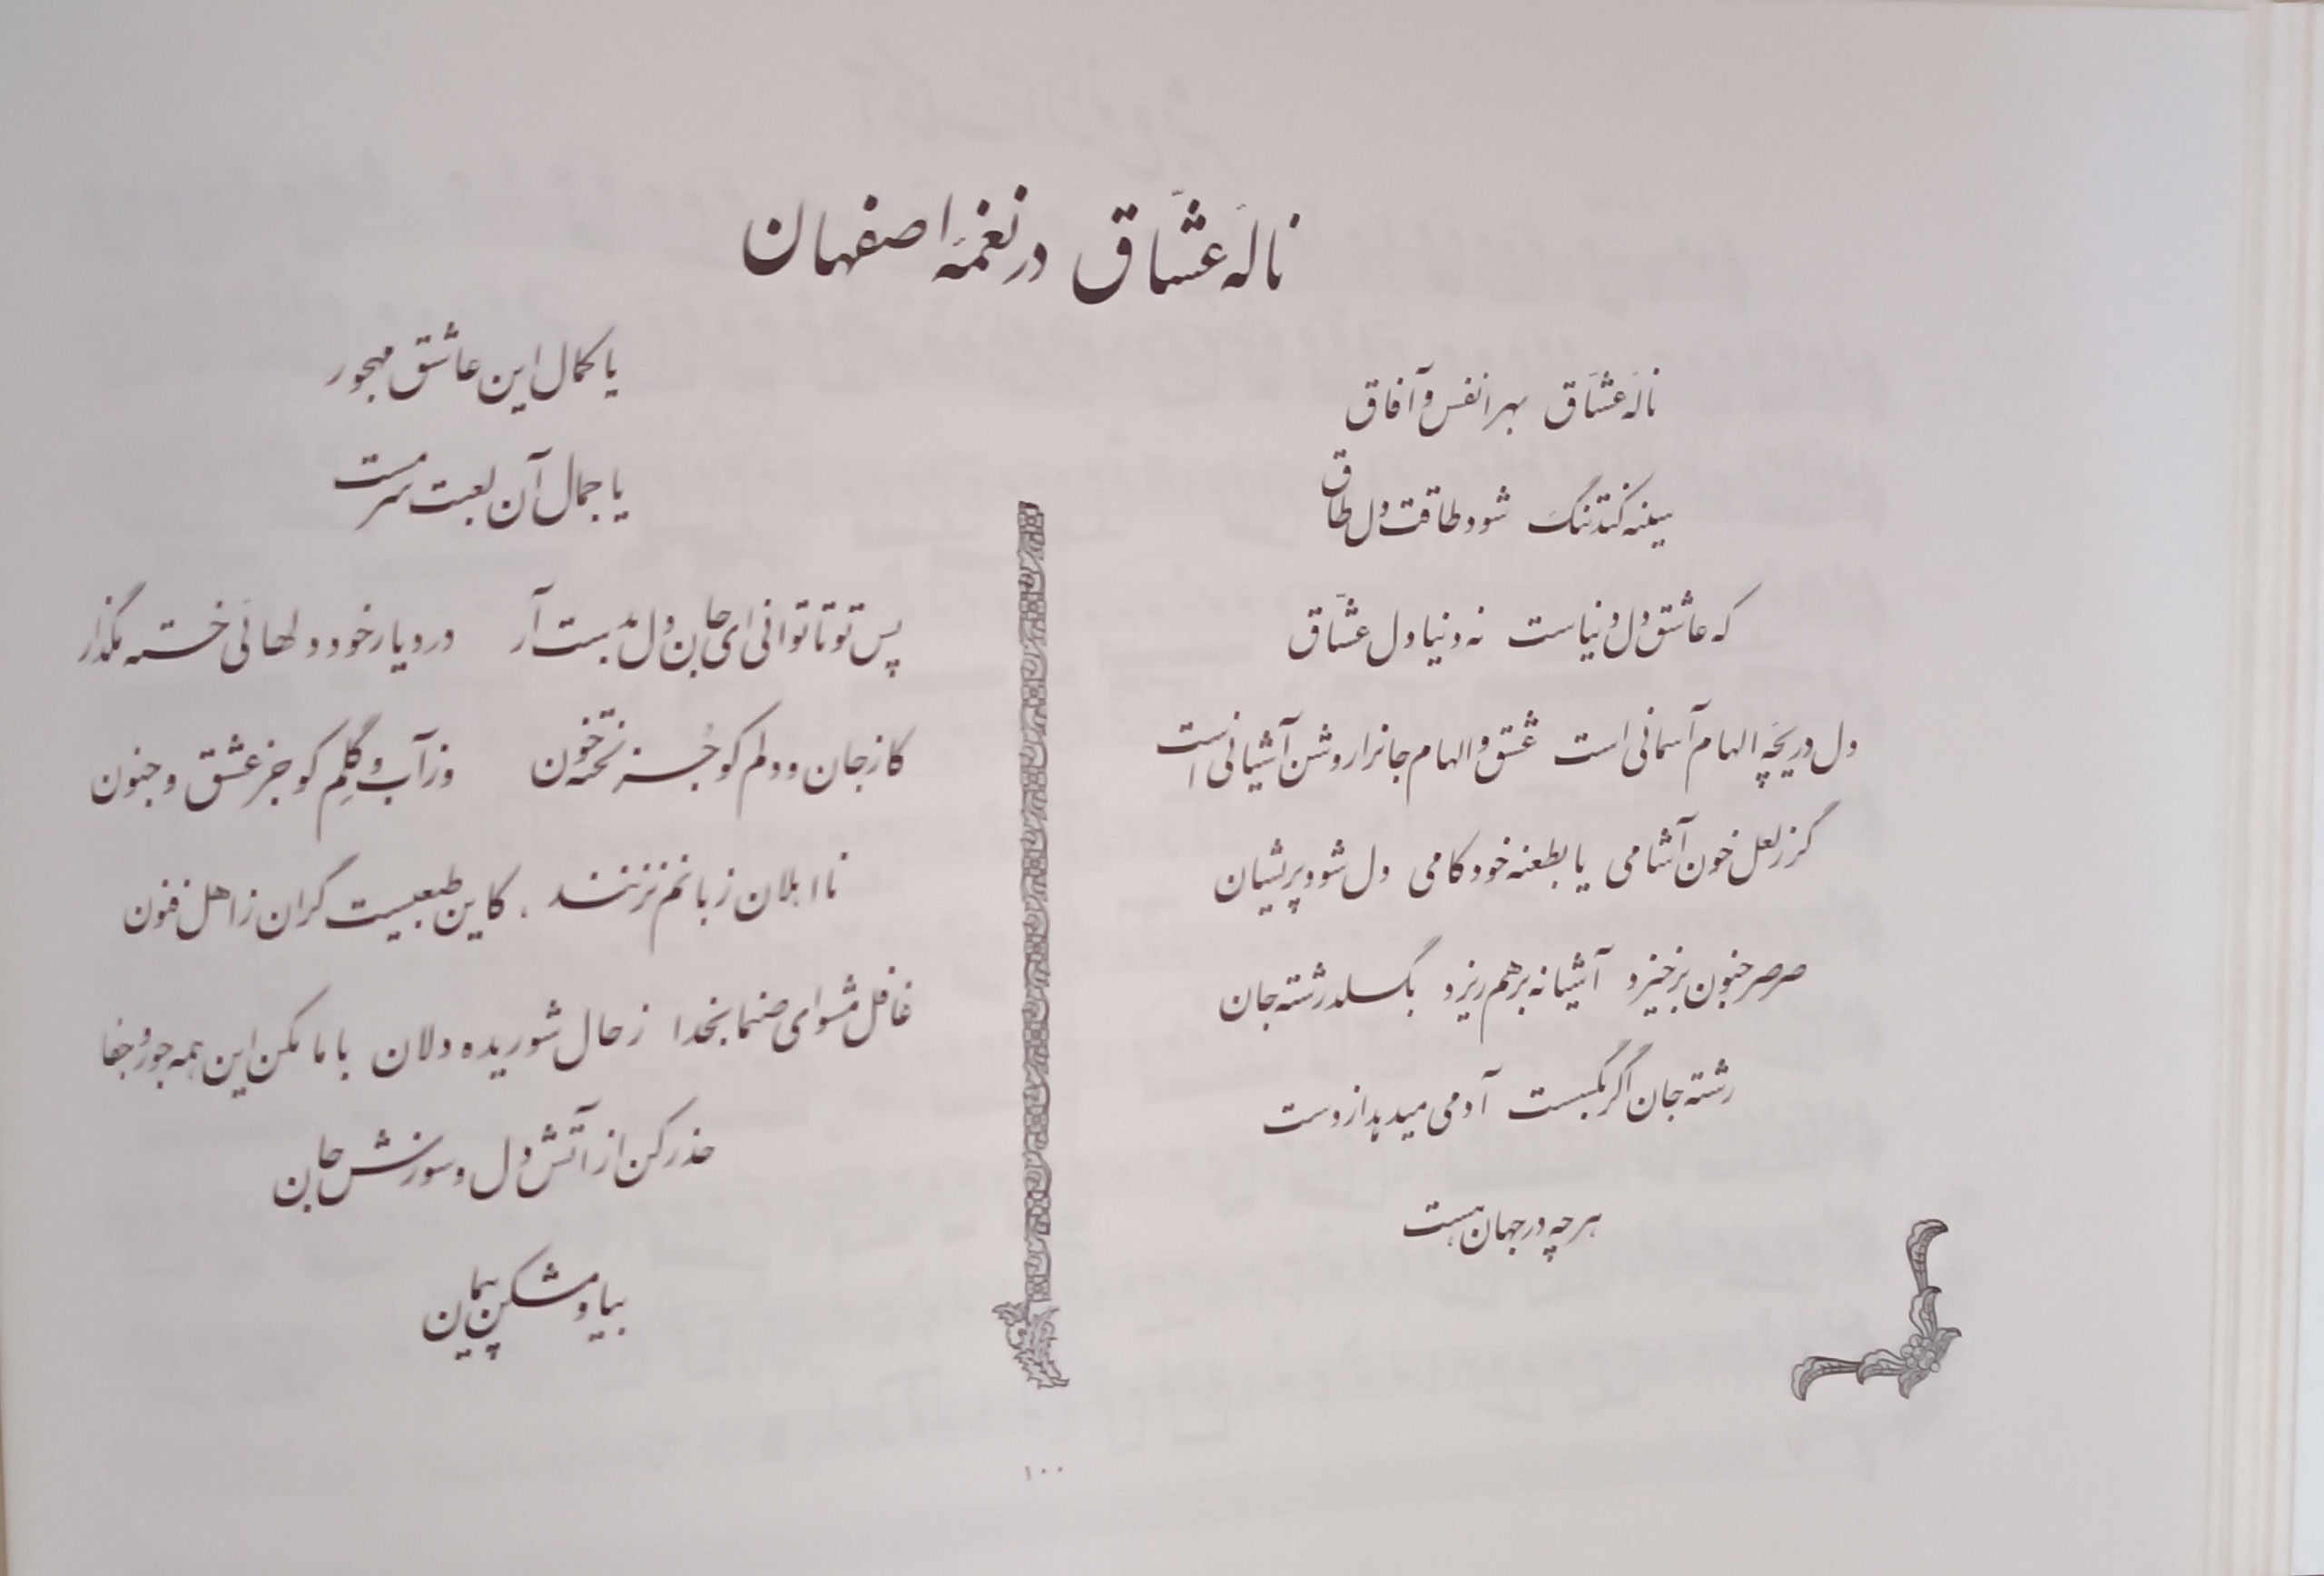 نالهٔ عشّاق در نغمهٔ اصفهان
نالهٔ عشّاق بهر انفس و آفاق
سینه کند تنگ شود طاقت دل طاق
که عاشق دل دنیاست نه دنیا دل عشّاق
دل دریچهٔ الهام آسمانی است عشق و الهام جانرا روشن آشیانی است
گر ز لعل خون آشامی یا بطعنه خودکامی دل شود پریشان
صرصر جنون برخیزد آشیانه برهم ریزد بگسلد رشته جان
رشته جان اگر بگسست آدمی میدهد از دست
هر چه در جهان هست
یا کمال این عاشق مهجور
یا جمال آن لعبت سرمست
پس تو تا توانی ای جان دل بدست آر در دیار خود دلهائی خسته مگذار
کاز جان و دلم کو جُز نختهٔ خون وز آب و گِلِم کو جز عشق و جنون
نااهلان ز بانم نزنند کاین طبعیست گران ز اهل فنون
غافل مشو ای صنما بخدا ز حال شوریده دلان با ما مکن این همه جور و جفا
حذر کن از آتش دل و سوزش جان
بیا و مشکن پیمان
۱۰۰